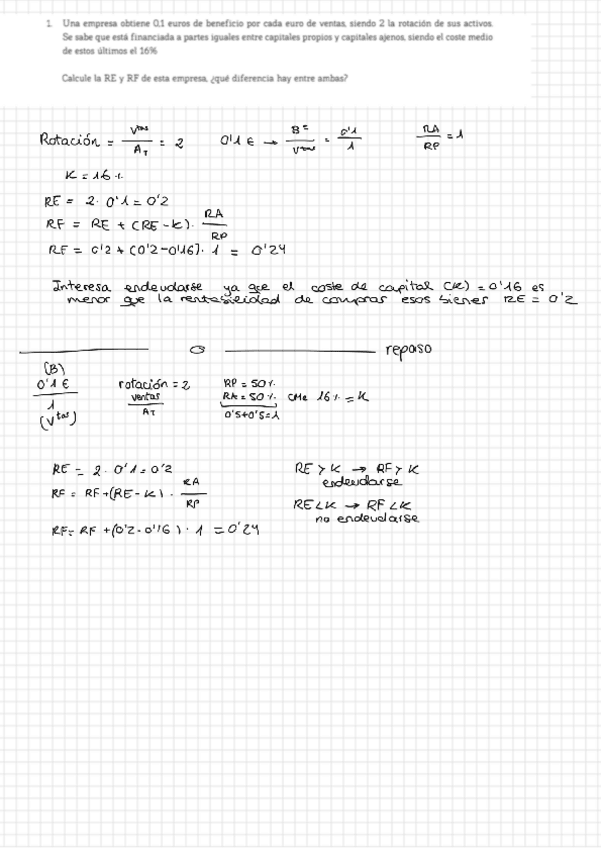 1. Una empresa obtiene 0,1 euros de beneficio por cada euro de ventas, siendo 2 la rotación de sus activos.
Se sabe que está financiada a partes iguales entre capitales propios y capitales ajenos, siendo el coste medio
de estos últimos el 16%
Calcule la RE y RF de esta empresa, ¿qué diferencia hay entre ambas?
Rotación = Vtas / AT = 2 0'1 € → Bº / Vtas = 0'1 / 1 RA / RP = 1
K = 16 %
RE = 2 · 0'1 = 0'2
RF = RE + (RE - K) · RA / RP
RF = 0'2 + (0'2 - 0'16) · 1 = 0'24
Interesa endeudarse ya que el coste de capital (K) = 0'16 es
menor que la rentabilidad de compras esos bienes RE = 0'2
repaso
(B) 0'1 € / 1 (Vtas)
rotación = 2
ventas / AT
RP = 50 %
RA = 50 % CMe 16 % = K
0'5+0'5=1
RE = 2 · 0'1 = 0'2
RF = RF + (RE - K) · RA / RP
RF = RF + (0'2 - 0'16) · 1 = 0'24
RE > K → RF > K
endeudarse
RE < K → RF < K
no endeudarse